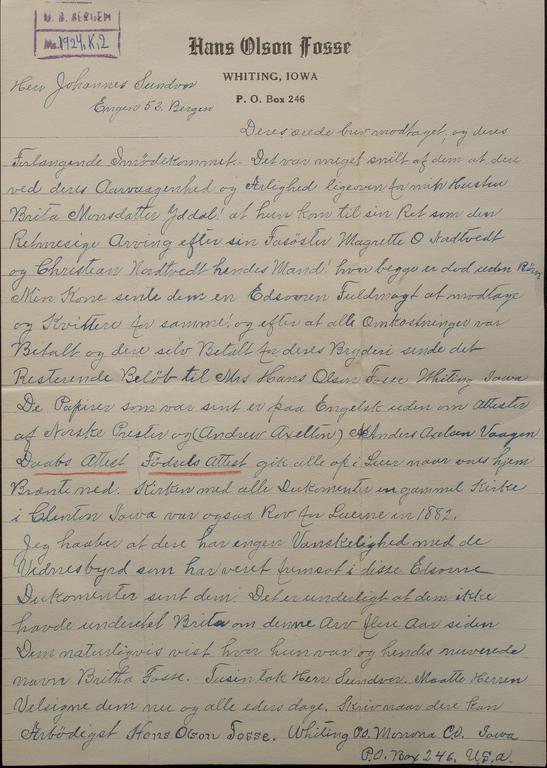 U. B. BERGEN
Ms. 1924, K. 2
Hans Olson Fosse
WHITING, IOWA
P. O. Box 246
Herr Johannes Sundvor
Engen 53. Bergen
Deres ærede brev modtaget, og deres
Forlangende Imödekommet. Det var meget snilt af dem at dere
ved deres Aarvaagenhed og Ærlighed ligeover for min Hustru
Brita Monsdatter Yddal! at hun kom til sin Ret som den
Retmesige Arving efter sin Fasöster Magrette O Nordtvedt
og Christian Nordtvedt hendes Mand! hvor begge er död uden
Min Kone sente dem en Edsvoren Fuldmagt at modtage
og Kvittere for samme! og efter at alle Omkostninger var
Betalt og dere selv Betalt for deres Bryderi sende det
Resterende Belöb til Mrs Hans Olson Fosse Whiting Iowa
De Papirer som var sent er paa Engelsk uden om Attester
af Norske Prester og (Andrew Axeltin) Anders Axelsen Vaagen
Daabs Attest Födsels Attest gik alle op i Luer naar vores hjem
Brante ned. Kirken med alle Dukomenter en gammel Kirke
i Clinton Iowa var ogsaa Rov for Luerne in 1882.
Jeg haaber at dere har engen Vanskelighed med de
Vidnesbyrd som har veret fremsat i disse Edsorne
Dukomenter sent dem. Det er underligt at dem ikke
havde underettet Brita om denne Arv flere Aar siden
Dem naturligvis vist hvor hun var og hendes nuverede
navn Britha Fosse. Tusin tak Herr Sundvor. Maatte Herren
Velsigne dem nu og alle eders dage. Skriv naar dere kan
Ærbödigst Hans Olson Fosse. Whiting P.O. Monona C.O. Iowa
P.O. Box 246. U.S.A.